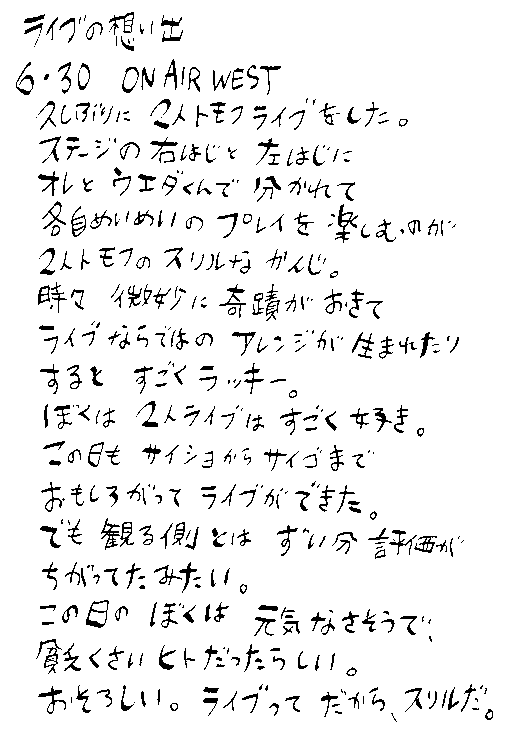 ライブの想い出
6・30 ON AIR WEST
久しぶりに 2人トモフライブをした。
ステージの右はじと 左はじに
オレと ウエダくんで 分かれて
各自めいめいの プレイを 楽しむ、のが
2人トモフの スリルな かんじ。
時々 微妙に 奇蹟が おきて
ライブならではの アレンジが 生まれたり
すると すごく ラッキー。
ぼくは 2人ライブは すごく 好き。
この日も サイショから サイゴまで
おもしろがって ライブが できた。
でも 観る側とは ずい分 評価が
ちがってた みたい。
この日の ぼくは 元気 なさそうで、
貧乏くさい ヒトだったらしい。
おそろしい。 ライブって だから、スリルだ。